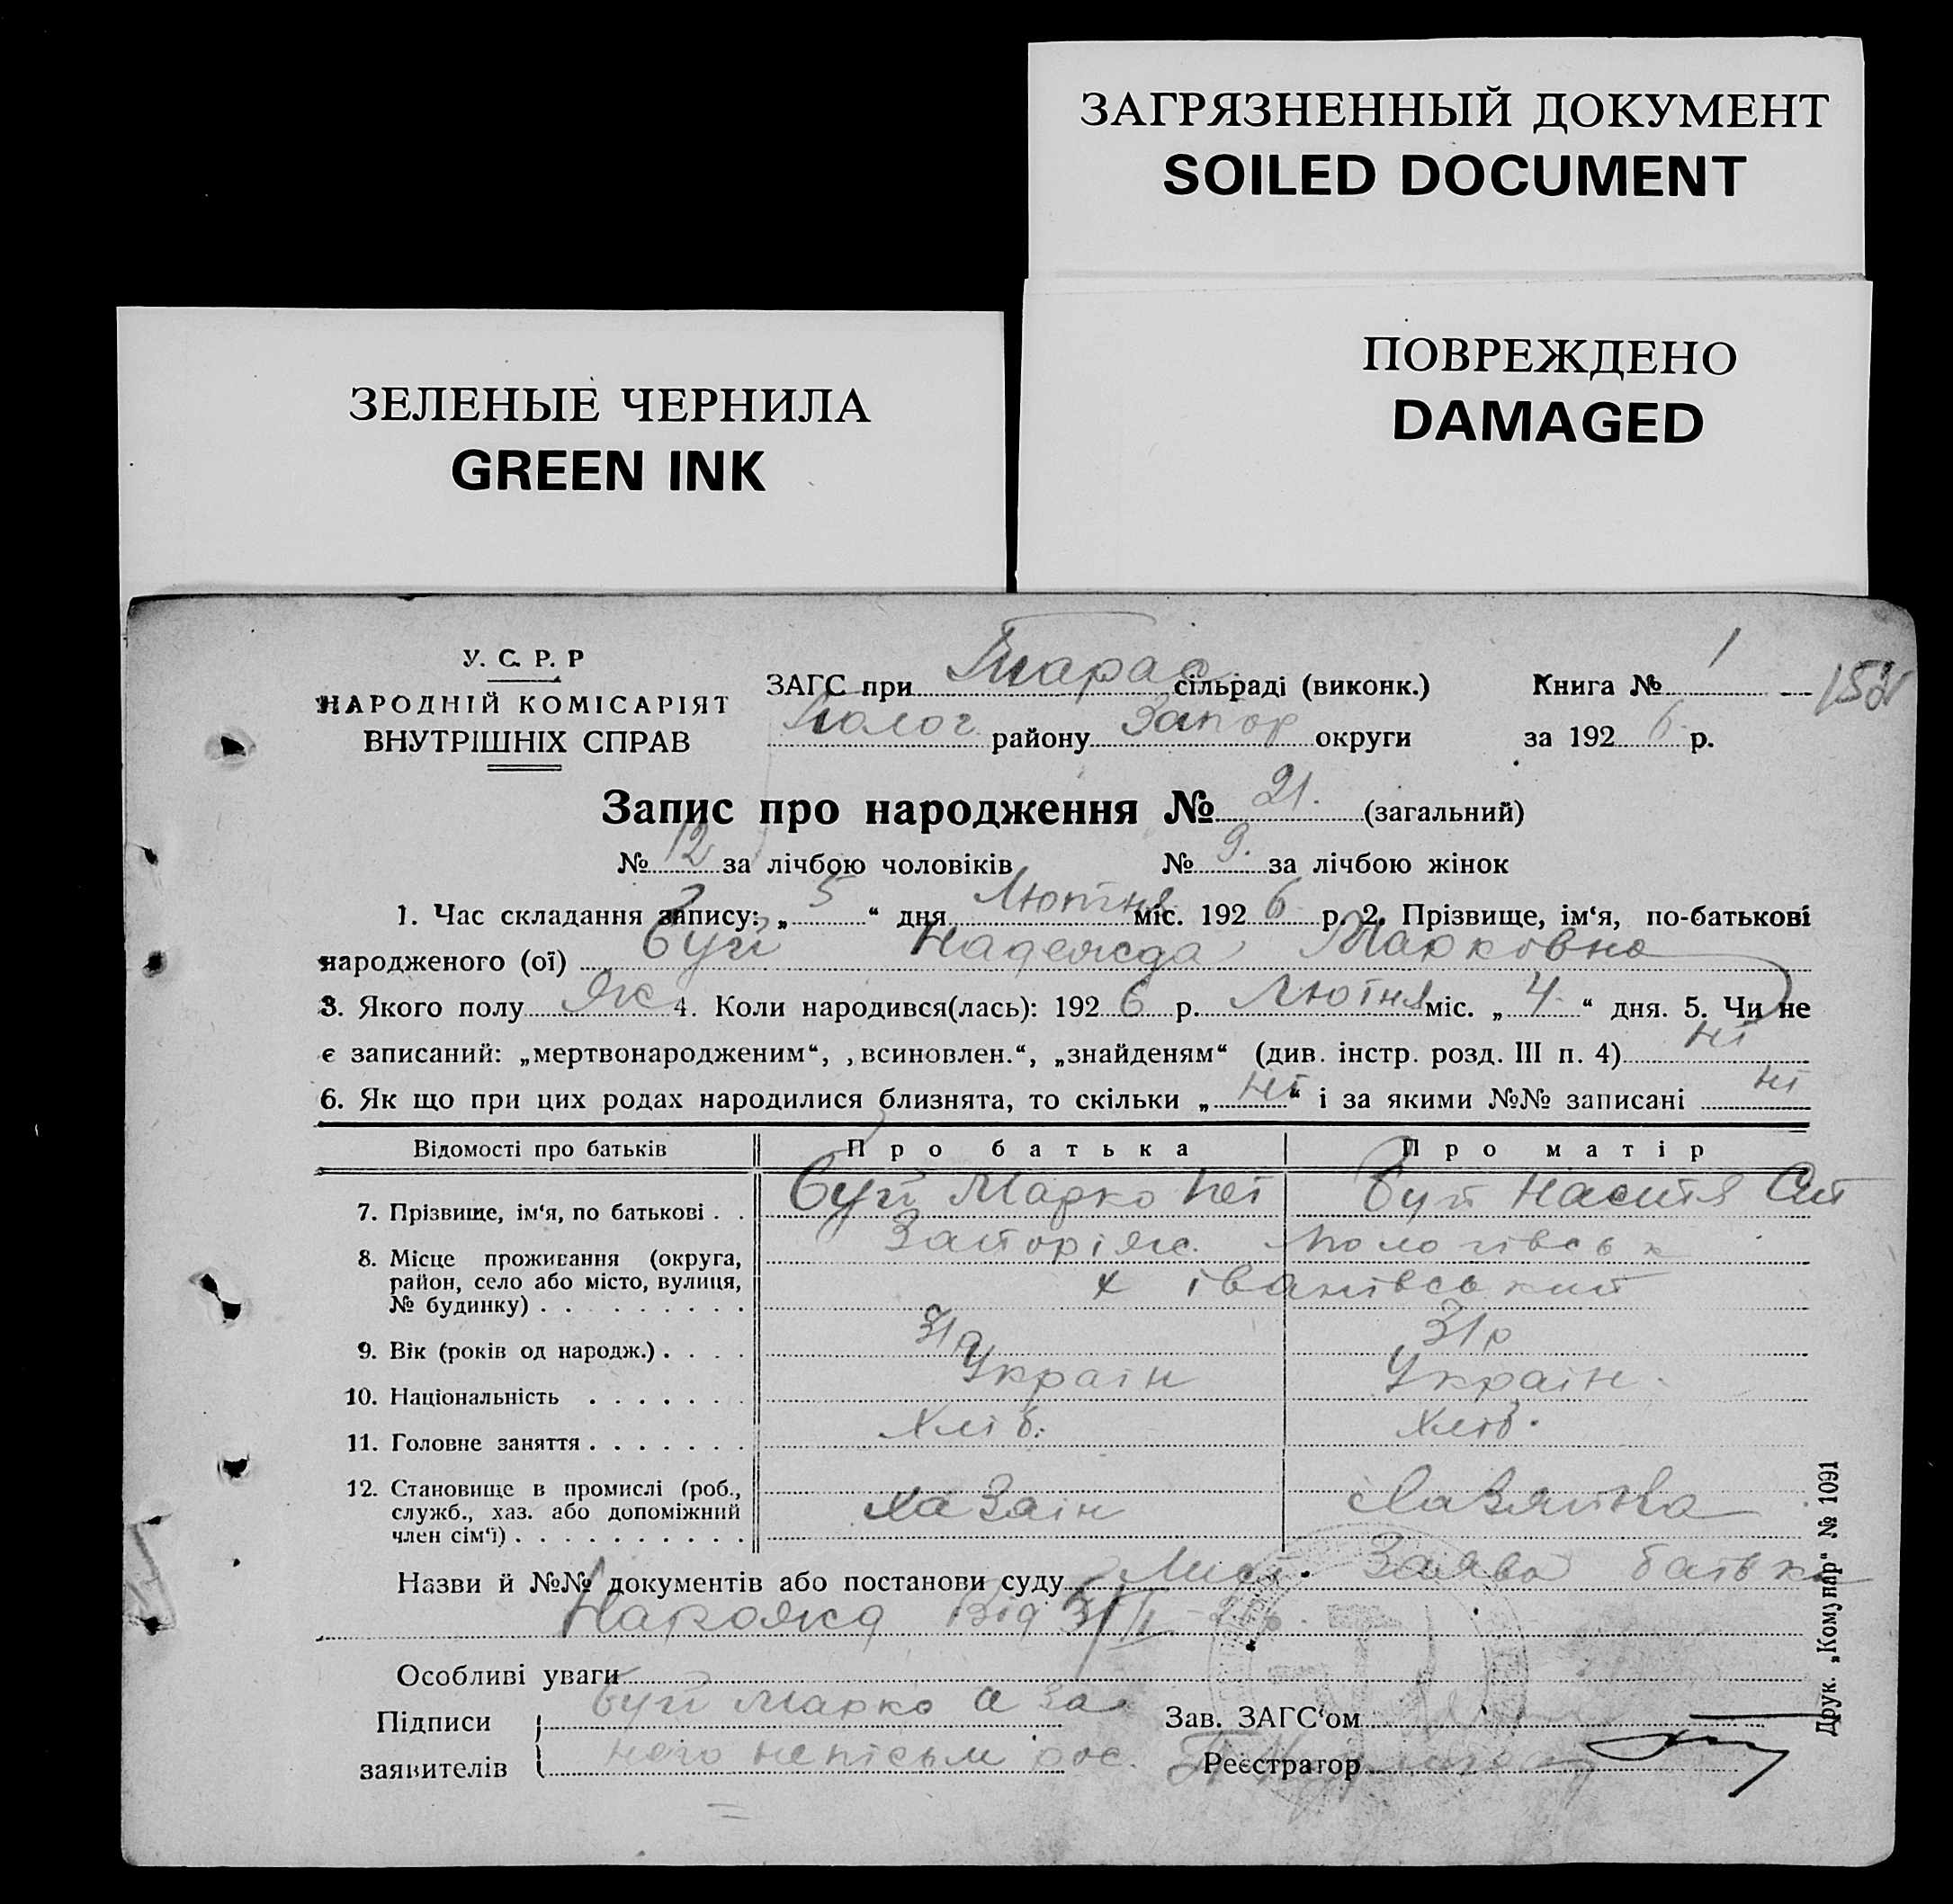 ЗАГРЯЗНЕННЫЙ ДОКУМЕНТ
SOILED DOCUMENT
ПОВРЕЖДЕНО
DAMAGED
ЗЕЛЕНЫЕ ЧЕРНИЛА
GREEN INK
У. С. Р. Р
НАРОДНІЙ КОМІСАРІЯТ
ВНУТРІШНІХ СПРАВ
ЗАГС при Тарас сільраді (виконк.) Книга № 1
Полог району Запор округи за 1926 р.
Запис про народження № 21. (загальний)
№ 12 за лічбою чоловіків № 9. за лічбою жінок
1. Час складання запису: „ 5 “ дня Лютня міс. 1926 р. 2. Прізвище, ім‘я, по-батькові
народженого (ої) Буй Надежда Марковна
3. Якого полу Жс 4. Коли народився(лась): 1926 р. Лютня міс. „ 4 “ дня. 5. Чи не
є записаний: „мертвонародженим“, „всиновлен.“, „знайденям“ (див. інстр. розд. III п. 4) ні
6. Як що при цих родах народилися близнята, то скільки „ ні “ і за якими №№ записані ні
Відомості про батьків Про батька Про матір
7. Прізвище, ім‘я, по батькові . . Буй Марко Буй Настя
8. Місце проживання (округа, район, село або місто, вулиця, № будинку) . . . . . . . . . Запоріж. Пологівськ
х Іванівський
9. Вік (років од народж.) . . . . 31р 31р
10. Національність . . . . . . . Украін Украін.
11. Головне заняття . . . . . . . Хліб. Хліб.
12. Становище в промислі (роб., служб., хаз. або допоміжний член сім‘ї) . . . . . . . . . . Хазаін Хазяйка
Назви й №№ документів або постанови суду Заява батька
Від 5/II 26р.
Особливі уваги
Підписи Буй Марко а за Зав. ЗАГС‘ом
заявителів него непісьм рос. Реєстратор
Друк. „Комунар“ № 1091